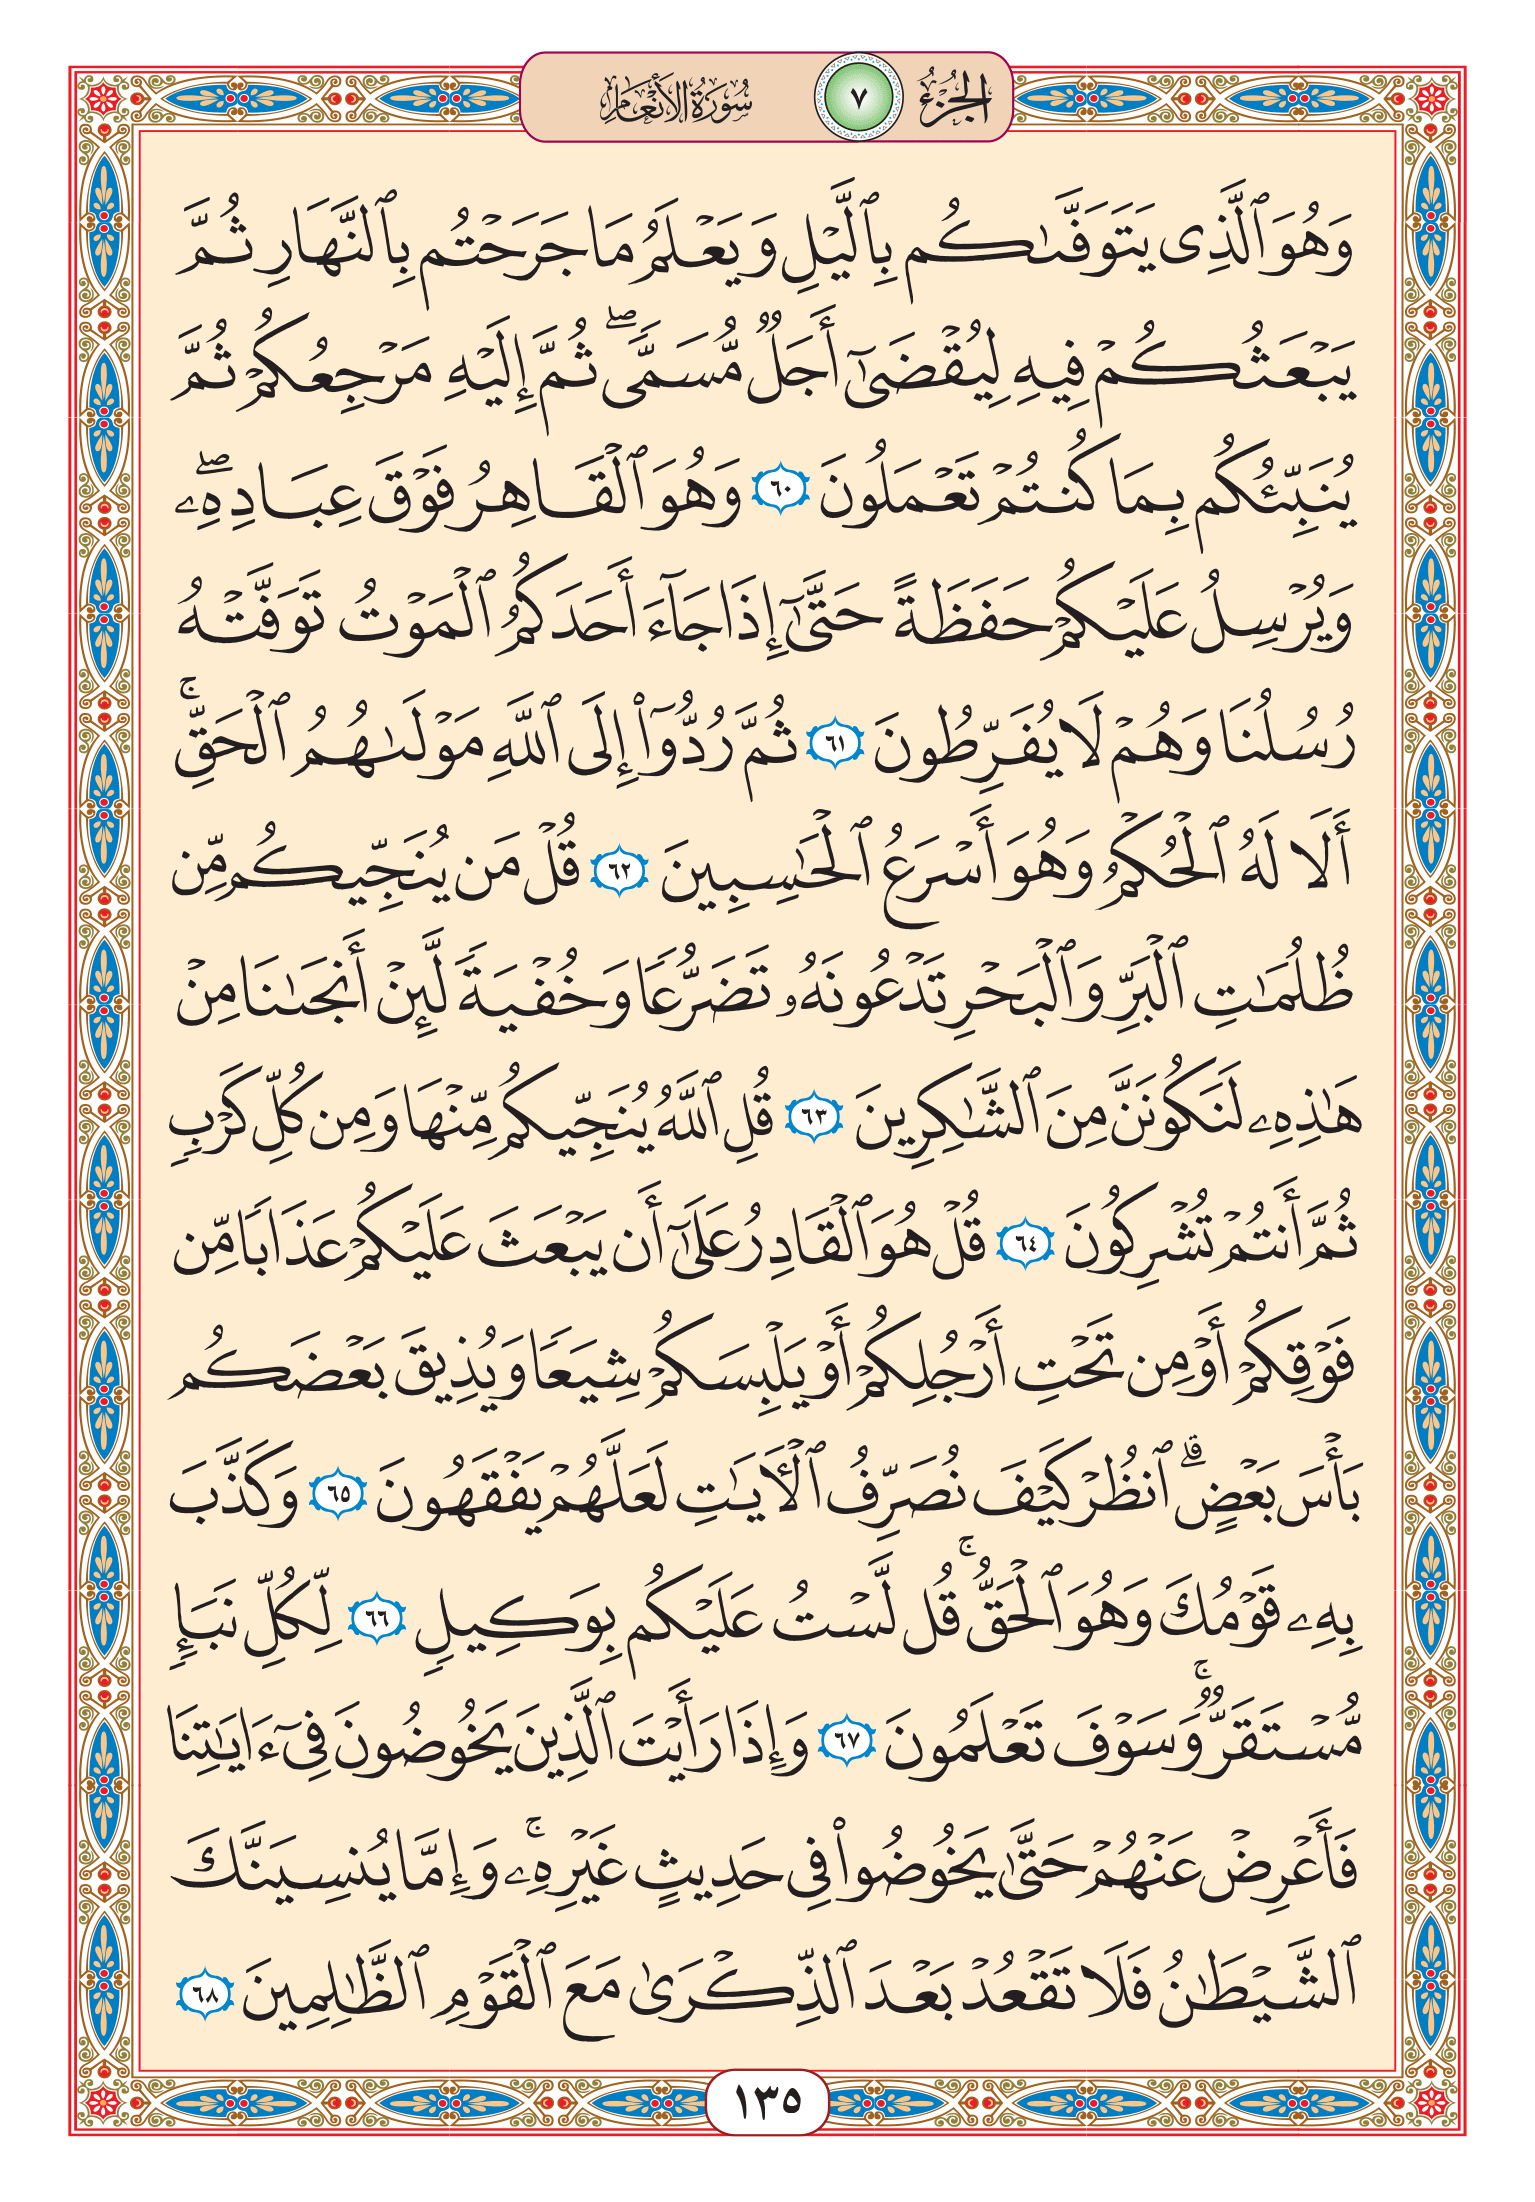 الجزء ٧ سورة الأنعام
وَهُوَ ٱلَّذِى يَتَوَفَّىٰكُم بِٱلَّيْلِ وَيَعْلَمُ مَا جَرَحْتُم بِٱلنَّهَارِ ثُمَّ
يَبْعَثُكُمْ فِيهِ لِيُقْضَىٰٓ أَجَلٌ مُّسَمًّى ۖ ثُمَّ إِلَيْهِ مَرْجِعُكُمْ ثُمَّ
يُنَبِّئُكُم بِمَا كُنتُمْ تَعْمَلُونَ ٦٠ وَهُوَ ٱلْقَاهِرُ فَوْقَ عِبَادِهِۦ ۖ
وَيُرْسِلُ عَلَيْكُمْ حَفَظَةً حَتَّىٰٓ إِذَا جَآءَ أَحَدَكُمُ ٱلْمَوْتُ تَوَفَّتْهُ
رُسُلُنَا وَهُمْ لَا يُفَرِّطُونَ ٦١ ثُمَّ رُدُّوٓا۟ إِلَى ٱللَّهِ مَوْلَىٰهُمُ ٱلْحَقِّ ۚ
أَلَا لَهُ ٱلْحُكْمُ وَهُوَ أَسْرَعُ ٱلْحَٰسِبِينَ ٦٢ قُلْ مَن يُنَجِّيكُم مِّن
ظُلُمَٰتِ ٱلْبَرِّ وَٱلْبَحْرِ تَدْعُونَهُۥ تَضَرُّعًا وَخُفْيَةً لَّئِنْ أَنجَىٰنَا مِنْ
هَٰذِهِۦ لَنَكُونَنَّ مِنَ ٱلشَّٰكِرِينَ ٦٣ قُلِ ٱللَّهُ يُنَجِّيكُم مِّنْهَا وَمِن كُلِّ كَرْبٍ
ثُمَّ أَنتُمْ تُشْرِكُونَ ٦٤ قُلْ هُوَ ٱلْقَادِرُ عَلَىٰٓ أَن يَبْعَثَ عَلَيْكُمْ عَذَابًا مِّن
فَوْقِكُمْ أَوْ مِن تَحْتِ أَرْجُلِكُمْ أَوْ يَلْبِسَكُمْ شِيَعًا وَيُذِيقَ بَعْضَكُم
بَأْسَ بَعْضٍ ۗ ٱنظُرْ كَيْفَ نُصَرِّفُ ٱلْءَايَٰتِ لَعَلَّهُمْ يَفْقَهُونَ ٦٥ وَكَذَّبَ
بِهِۦ قَوْمُكَ وَهُوَ ٱلْحَقُّ ۚ قُل لَّسْتُ عَلَيْكُم بِوَكِيلٍ ٦٦ لِّكُلِّ نَبَإٍ
مُّسْتَقَرٌّ ۚ وَسَوْفَ تَعْلَمُونَ ٦٧ وَإِذَا رَأَيْتَ ٱلَّذِينَ يَخُوضُونَ فِىٓ ءَايَٰتِنَا
فَأَعْرِضْ عَنْهُمْ حَتَّىٰ يَخُوضُوا۟ فِى حَدِيثٍ غَيْرِهِۦ ۚ وَإِمَّا يُنسِيَنَّكَ
ٱلشَّيْطَٰنُ فَلَا تَقْعُدْ بَعْدَ ٱلذِّكْرَىٰ مَعَ ٱلْقَوْمِ ٱلظَّٰلِمِينَ ٦٨
١٣٥